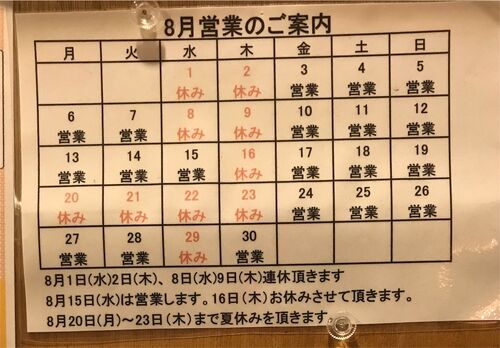 8月営業のご案内
月 火 水 木 金 土 日
1 2 3 4 5
休み 休み 営業 営業 営業
6 7 8 9 10 11 12
営業 営業 休み 休み 営業 営業 営業
13 14 15 16 17 18 19
営業 営業 営業 休み 営業 営業 営業
20 21 22 23 24 25 26
休み 休み 休み 休み 営業 営業 営業
27 28 29 30
営業 営業 休み 営業
8月1日(水)2日(木)、8日(水)9日(木)連休頂きます
8月15日(水)は営業します。16日(木)お休みさせて頂きます。
8月20日(月)～23日(木)まで夏休みを頂きます。